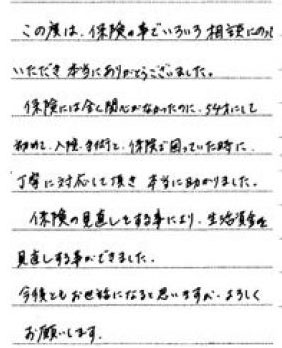 この度は、保険の事でいろいろ相談にのって
いただき本当にありがとうございました。
保険には全く関心がなかったのに、54才にして
初めて、入院、手術と、保険で困っていた時に、
丁寧に対応して頂き本当に助かりました。
保険の見直しをする事により、生活資金を
見直しする事ができました。
今後ともお世話になると思いますが、よろしく
お願いします。